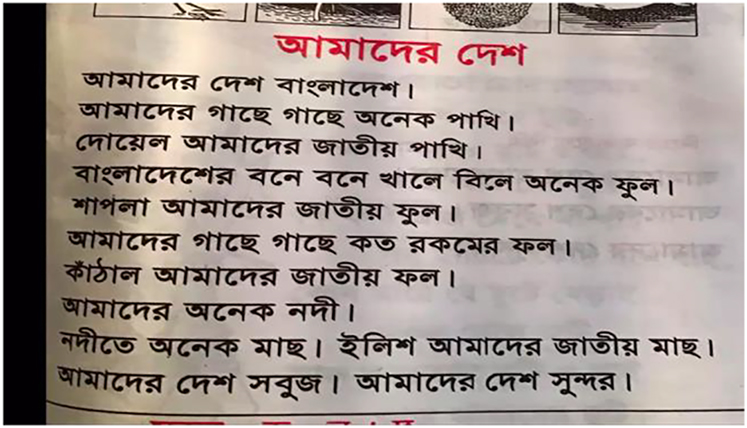 আমাদের দেশ
আমাদের দেশ বাংলাদেশ।
আমাদের গাছে গাছে অনেক পাখি।
দোয়েল আমাদের জাতীয় পাখি।
বাংলাদেশের বনে বনে খালে বিলে অনেক ফুল।
শাপলা আমাদের জাতীয় ফুল।
আমাদের গাছে গাছে কত রকমের ফল।
কাঁঠাল আমাদের জাতীয় ফল।
আমাদের অনেক নদী।
নদীতে অনেক মাছ। ইলিশ আমাদের জাতীয় মাছ।
আমাদের দেশ সবুজ। আমাদের দেশ সুন্দর।